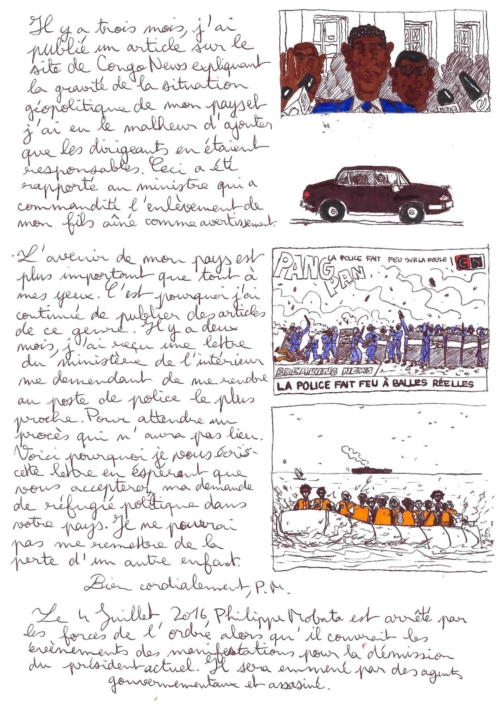 Il y a trois mois, j'ai
publié un article sur le
site de Congo News expliquant
la gravité de la situation
géopolitique de mon pays et
j'ai eu le malheur d'ajouter
que les dirigeants en étaient
responsables. Ceci a été
rapporté au ministre qui a
commandité l'enlèvement de
mon fils aîné comme avertissement.
L'avenir de mon pays est
plus important que tout à
mes yeux. C'est pourquoi j'ai
continué de publier des articles
de ce genre. Il y a deux
mois, j'ai reçu une lettre
du ministère de l'intérieur
me demandant de me rendre
au poste de police le plus
proche. Pour attendre un
procès qui n'aura pas lieu.
Voici pourquoi je vous écris
cette lettre en espérant que
vous accepterez ma demande
de réfugié politique dans
votre pays. Je ne pourrai
pas me remettre de la
perte d'un autre enfant.
Bien cordialement, P.M.
PANG PAN
LA POLICE FAIT FEU SUR LA FOULE !
CN
BREAKING NEWS
LA POLICE FAIT FEU À BALLES RÉELLES
Le 4 Juillet 2016, Philippe Mobata est arrêté par
les forces de l'ordre alors qu'il couvrait les
évènements des manifestations pour la démission
du président actuel. Il sera emmené par des agents
gouvernementaux et assasiné.